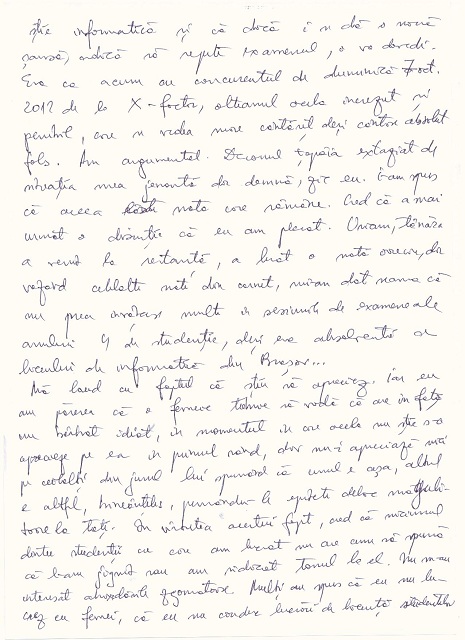 știe informatică și că dacă i se dă o nouă
șansă, adică să repete examenul, o va dovedi.
Era ca acum cu concurentul de duminică 7 oct.
2012 de la X-factor, olteanul acela increzut și
penibil, care se vedea mare cântăreț deși cânta absolut
fals. Am argumentat. Decanul țopăia extaziat de
situația mea jenantă dar demnă, zic eu. I-am spus
că aceea nota care rămâne. Cred că a mai
urmat o discuție că eu am plecat. Oricum, tânăra
a venit la restanță, a luat o notă oarecare, dar
văzând celelalte note din carnet, mi-am dat seama că
nu prea învățase mult în sesiunile de examene ale
anului de studenție, deși era absolventă a
liceului de informatică din Brașov...
Mă laud cu faptul că știu să apreciez. Iar eu
am părerea că o femeie trebuie să vadă că are în față
un bărbat idiot, în momentul în care acela nu știe s-o
aprecieze pe ea în primul rând, dar nu-i apreciază nici
pe ceilalți din jurul lui spunând că unul e așa, altul
e altfel, punându-le epitete deloc măguli-
toare la toți. În virtutea acestui fapt, cred că niciunul
dintre studenții cu care am lucrat nu are cum să spună
că l-am jignit sau am ridicat tonul la el. Nu m-au
interesat abordările zgomotoase. Mulți au spus că eu nu lu-
crez cu femei, că eu nu conduc lucrări de licență studentelor